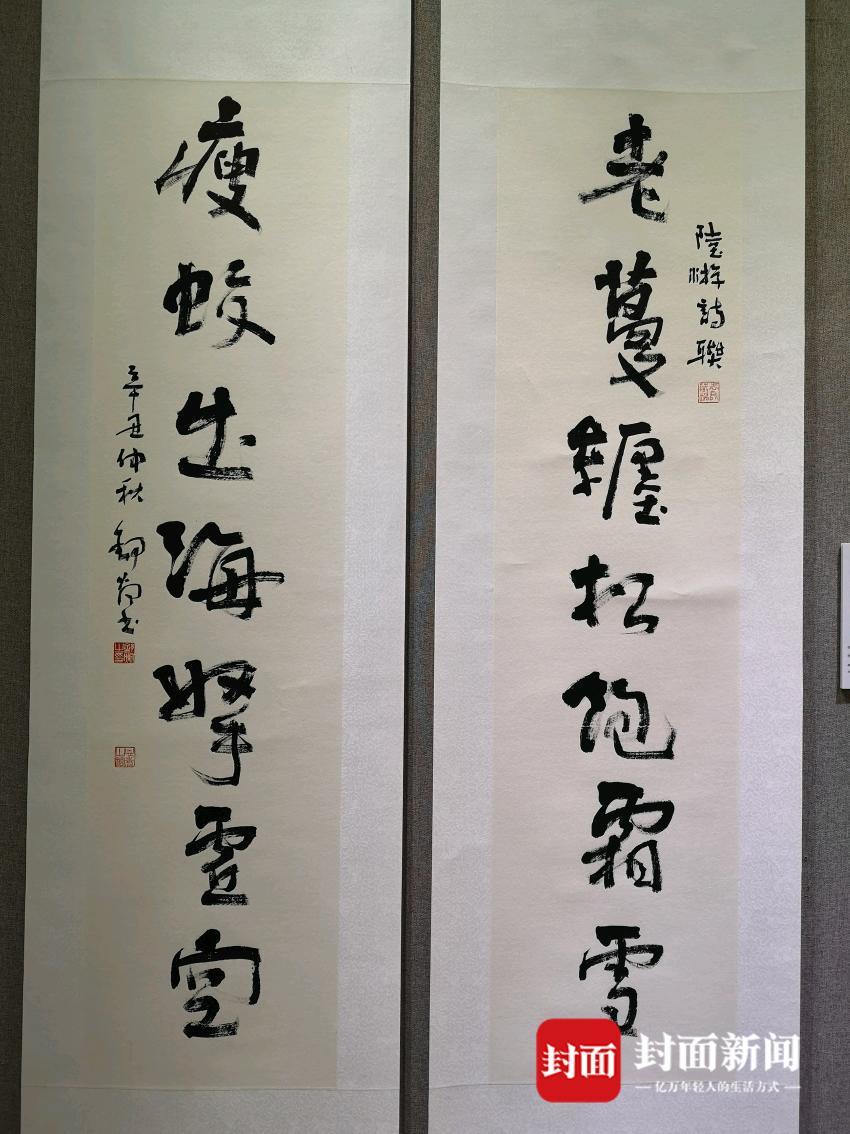 老蔓纏松飽霜雪
陸游詩聯
瘦蛟出海拏虛空
辛丑仲秋
封面
封面新闻
亿万年轻人的生活方式